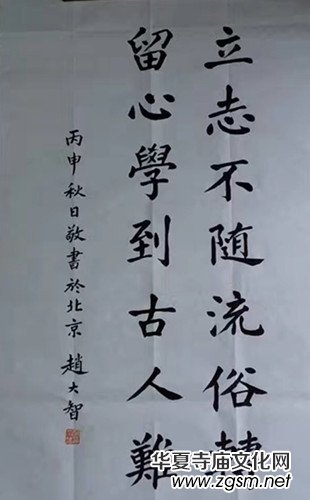 立志不随流俗转
留心學到古人難
丙申秋日敬書於北京 趙大智
华夏寺庙文化网
www.zgsm.net